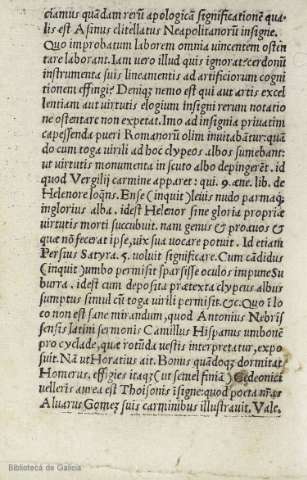 ciamus quãdam rerũ apologicã significationẽ qua-
lis est Asinus clitellatus Neapolitanorũ insigne.
Quo improbatum laborem omnia uincentem osten
tare laborant. Iam uero illud quis ignorat: cerdonũ
instrumenta suis lineamentis ad artificiorum cogni
tionem effingi? Deniq; nemo est qui aut artis excel
lentiam aut uirtutis elogium insigni rerum notatio
ne ostentare non expetat. Imo ad insignia priuatim
capessenda pueri Romanorũ olim inuitabãtur: quã
do cum toga uirili ad hoc clypeos albos sumebant:
ut uirtutis monumenta in scuto albo depingerẽt. id
quod Vergilij carmine apparet: qui. 9. æne. lib. de
Helenore loq̃ns. Ense (inquit) leuis nudo parmaq;
inglorius alba. idest Helenor sine gloria propriæ
uirtutis morti succubuit. nam genus & proauos &
quæ nõ fecerat ipse, uix sua uocare potuit. Id etiam
Persius Satyra. 5. uoluit significare. Cum cãdidus
(inquit) umbo permisit sparsisse oculos impune Su
burra. idest cum deposita prætexta clypeus albus
sumptus simul cũ toga uirili permisit. &c. Quo ĩ lo
co non est sane mirandum, quod Antonius Nebris
sensis latini sermonis Camillus Hispanus umbonẽ
pro cyclade, quæ rotũda uestis interpretatur, expo
suit. Nã ut Horatius ait. Bonus quãdoq; dormitat
Homerus, effigies itaq; (ut semel finiã) Gedeonici
uelleris aurea est Thoisonis ĩsigne: quod poeta
Aluarus Gomez suis carminibus illustrauit. Vale.
Biblioteca de Galicia